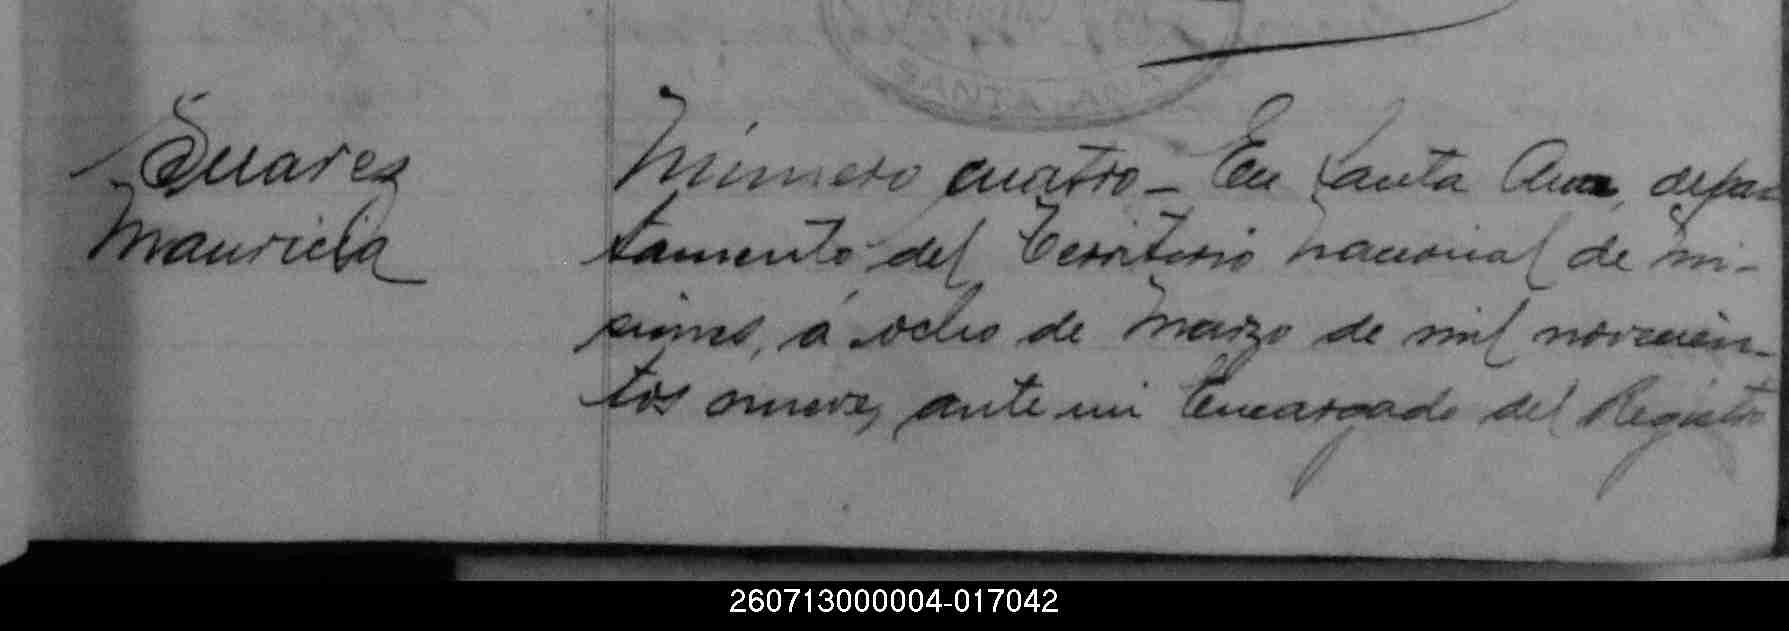 Suarez
Mauricia
Número cuatro – En Santa Ana, depar
tamento del Territorio nacional de Mi-
siones, á ocho de Marzo de mil novecien-
tos nueve, ante mi Encargado del Registro
260713000004-017042